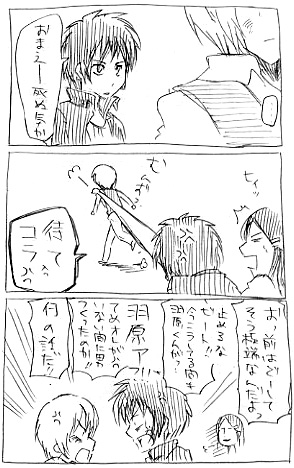 おまえ──死ぬ気か
…
むんず?
ヒィッ
待て
コラっっ
お、お前はどーして
そう極端なんだよっ
止めるな
ゼート!!
今こうしてる間も
羽原くんが?
羽原ァ
てめオレがい
ない間に男
つくったのか!!
何の話だ!!